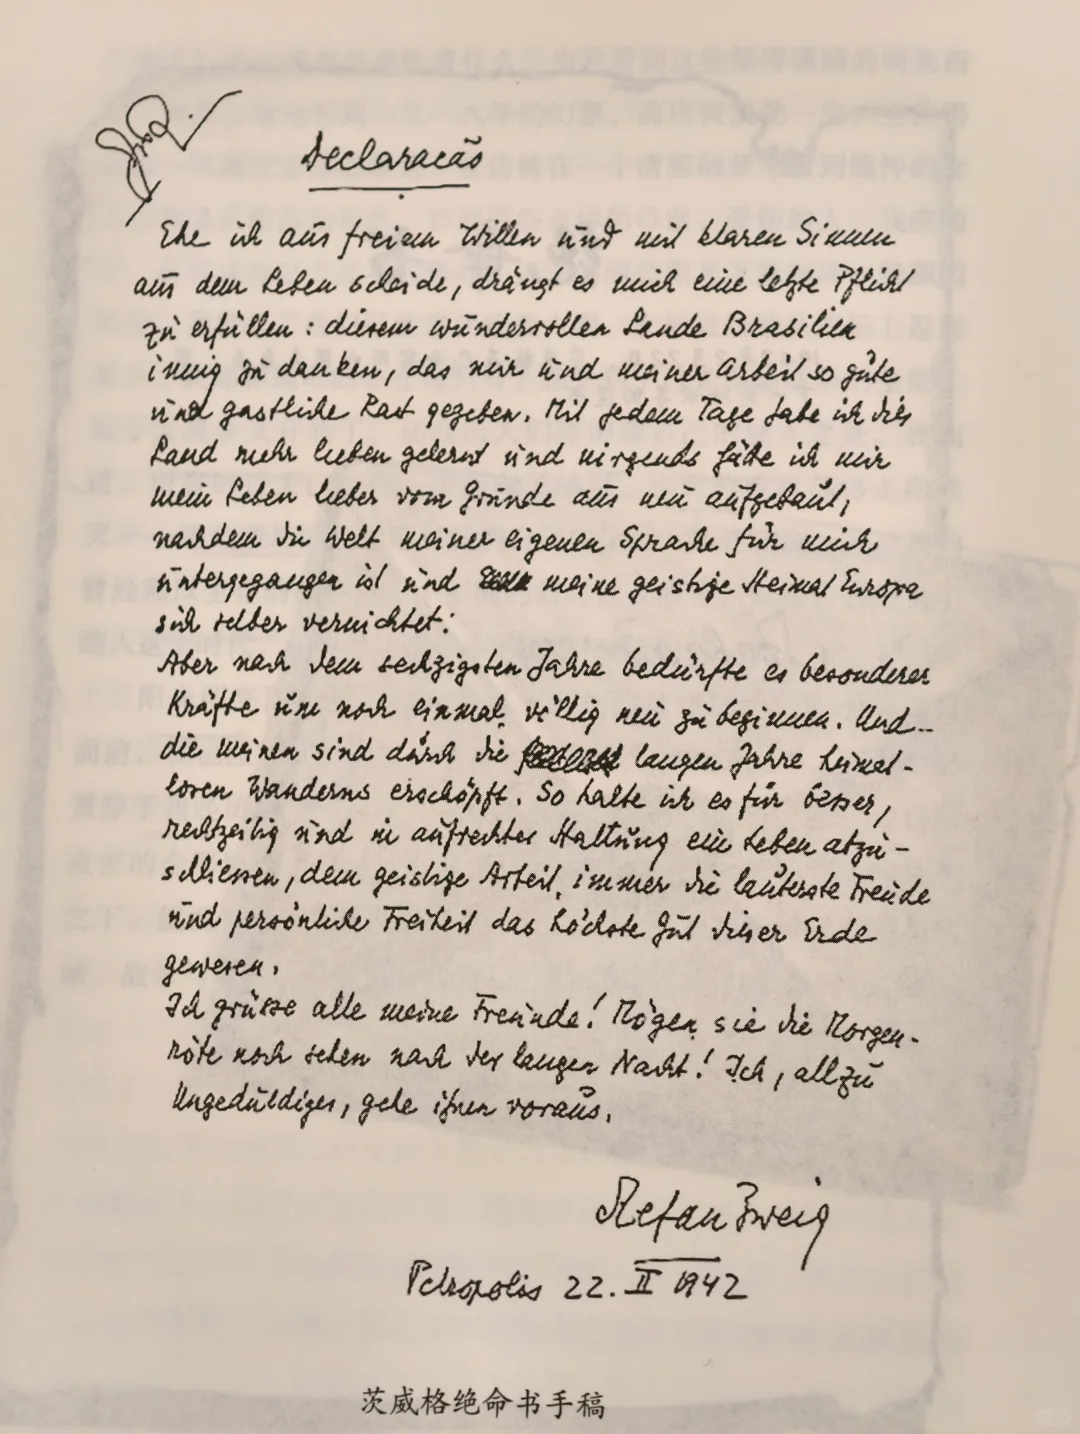 Declaracão
Ehe ich aus freiem Willen und mit klaren Sinnen
aus dem Leben scheide, drängt es mich eine letzte Pflicht
zu erfüllen: diesem wundervollen Lande Brasilien
innig zu danken, das mir und meiner Arbeit so gute
und gastliche Rast gegeben. Mit jedem Tage habe ich dies
Land mehr lieben gelernt und nirgends hätte ich mir
mein Leben lieber vom Grunde aus neu aufgebaut,
nachdem die Welt meiner eigenen Sprache für mich
untergegangen ist und meine geistige Heimat Europa
sich selber vernichtet:
Aber nach dem sechzigsten Jahre bedürfte es besonderer
Kräfte um noch einmal völlig neu zu beginnen. Und
die meinen sind durch die langen Jahre heimat-
losen Wanderns erschöpft. So halte ich es für besser,
rechtzeitig und in aufrechter Haltung ein Leben abzu-
schliessen, dem geistige Arbeit immer die lauterste Freude
und persönliche Freiheit das höchste Gut dieser Erde
gewesen.
Ich grüsse alle meine Freunde! Mögen sie die Morgen-
röte noch sehen nach der langen Nacht! Ich, allzu
Ungeduldiger, gehe ihnen voraus.
Stefan Zweig
Petropolis 22. II 1942
茨威格绝命书手稿